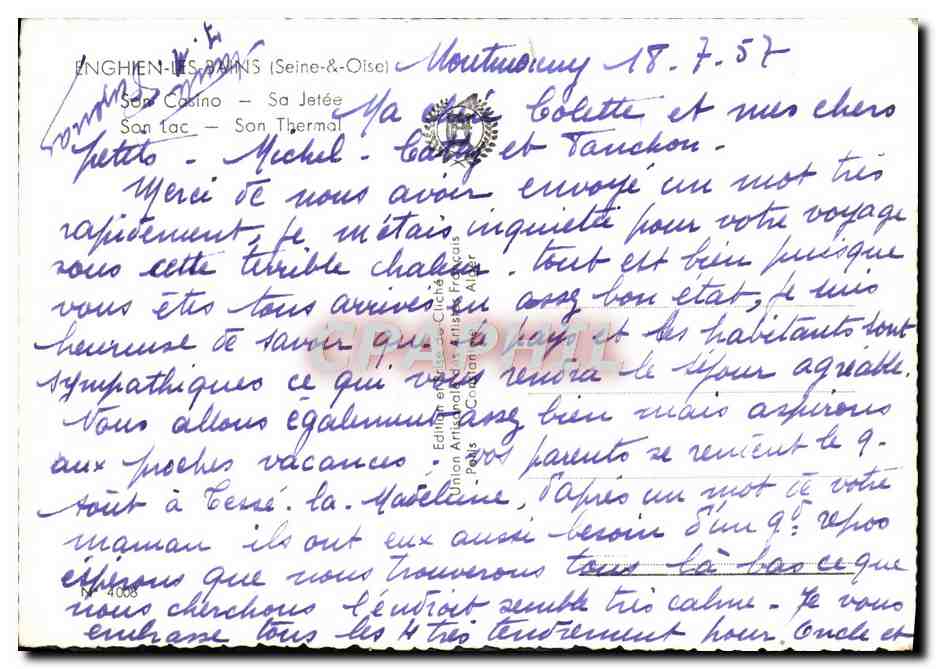 ENGHIEN-LES-BAINS (Seine-&-Oise)
Son Casino — Sa Jetée
Son Lac — Son Thermal
Montmorency 18.7.57
Ma chère Colette et mes chers
petits - Michel - Cathy et Fanchon -
Merci de nous avoir envoyé un mot très
rapidement, je m'étais inquiétée pour votre voyage
sous cette terrible chaleur. tout est bien puisque
vous êtes tous arrivés en assez bon état, je suis
heureuse de savoir que le pays et les habitants sont
sympathiques ce qui vous rendra le séjour agréable.
Nous allons également assez bien mais aspirons
aux proches vacances. vos parents se rendent le 9
août à Tessé-la-Madeleine, d'après un mot de votre
maman ils ont eux aussi besoin d'un gd repos
espérons que nous trouverons tous là bas ce que
nous cherchons l'endroit semble très calme - Je vous
embrasse tous les 4 très tendrement pour Oncle et
N° 4008
Edition en
du Cliché
Union Artisanale des Artistes Français
Paris - Constantine - Alger
CPAPHIL